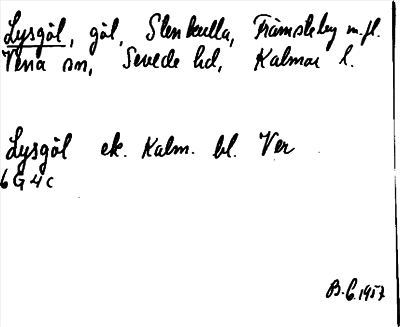 Lysgöl, göl, Stenkulla, Främsteby m.fl.
Vena sn, Sevede hd, Kalmar l.
Lysgöl ek. Kalm. bl. Ver
6 G 4 c
B.G. 1957